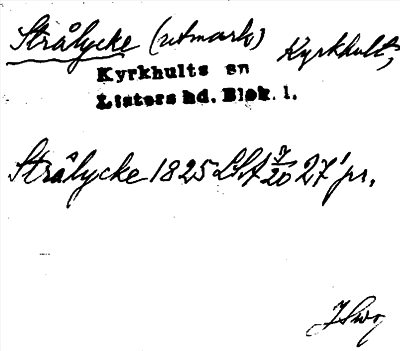 Strålycke (utmark) Kyrkhult,
Kyrkhults sn
Listers hd. Blek. l.
Strålycke 1825 LSA 20 27 pr.